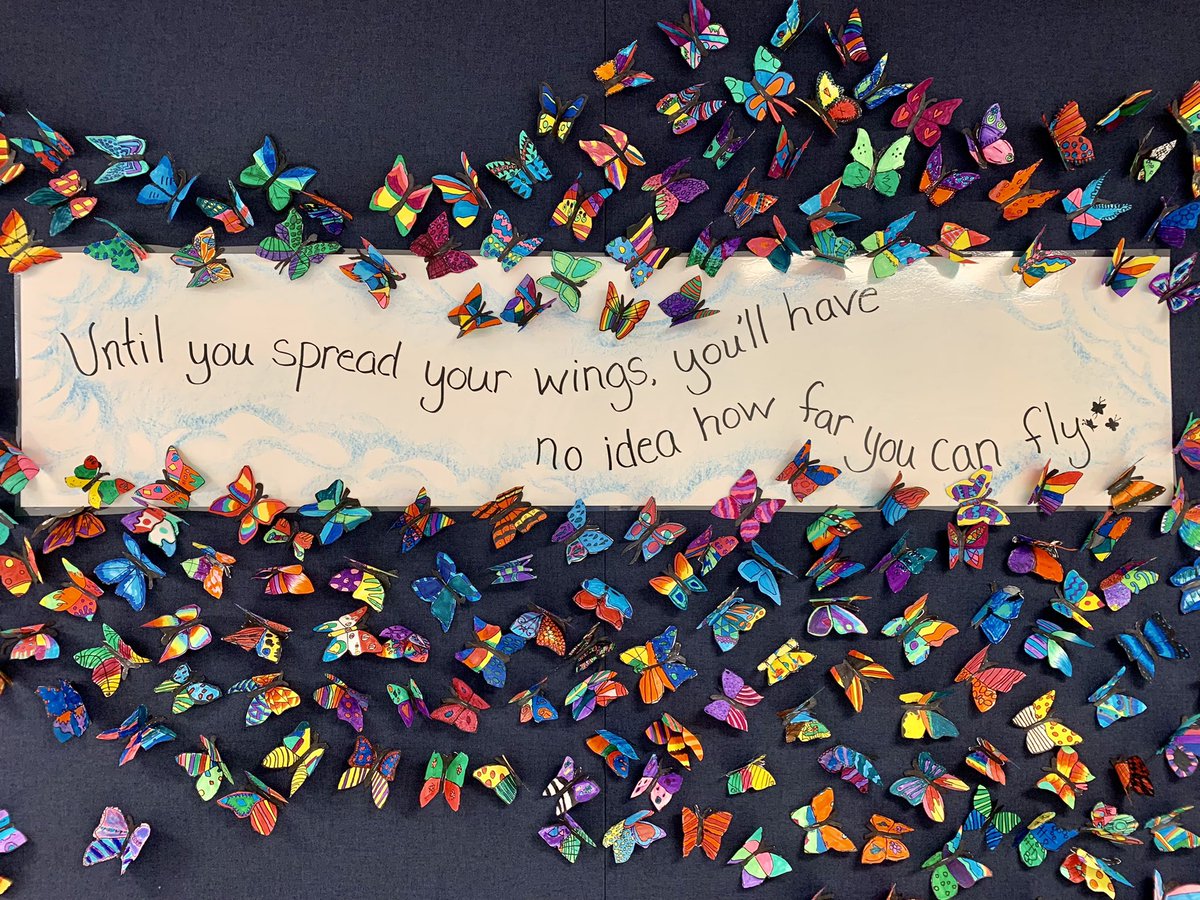 Until you spread your wings, you'll have
no idea how far you can fly